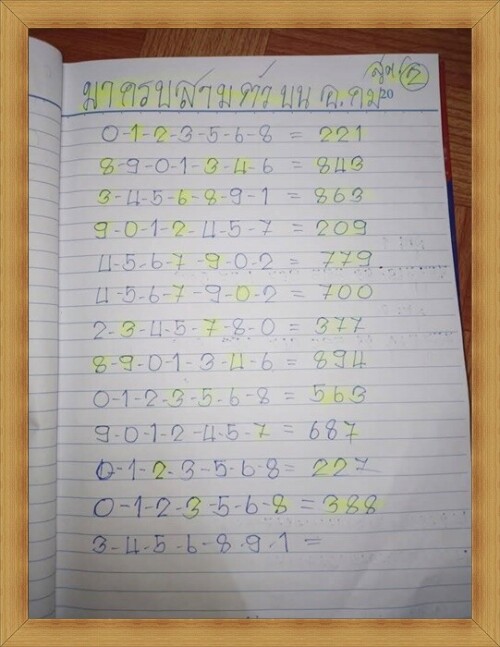 สูตร 2
มาครบสามตัวบน อ.คม
20
0-1-2-3-5-6-8 = 221
8-9-0-1-3-4-6 = 843
3-4-5-6-8-9-1 = 863
9-0-1-2-4-5-7 = 209
4-5-6-7-9-0-2 = 779
4-5-6-7-9-0-2 = 700
2-3-4-5-7-8-0 = 377
8-9-0-1-3-4-6 = 894
0-1-2-3-5-6-8 = 563
9-0-1-2-4-5-7 = 687
0-1-2-3-5-6-8 = 227
0-1-2-3-5-6-8 = 388
3-4-5-6-8-9-1 =